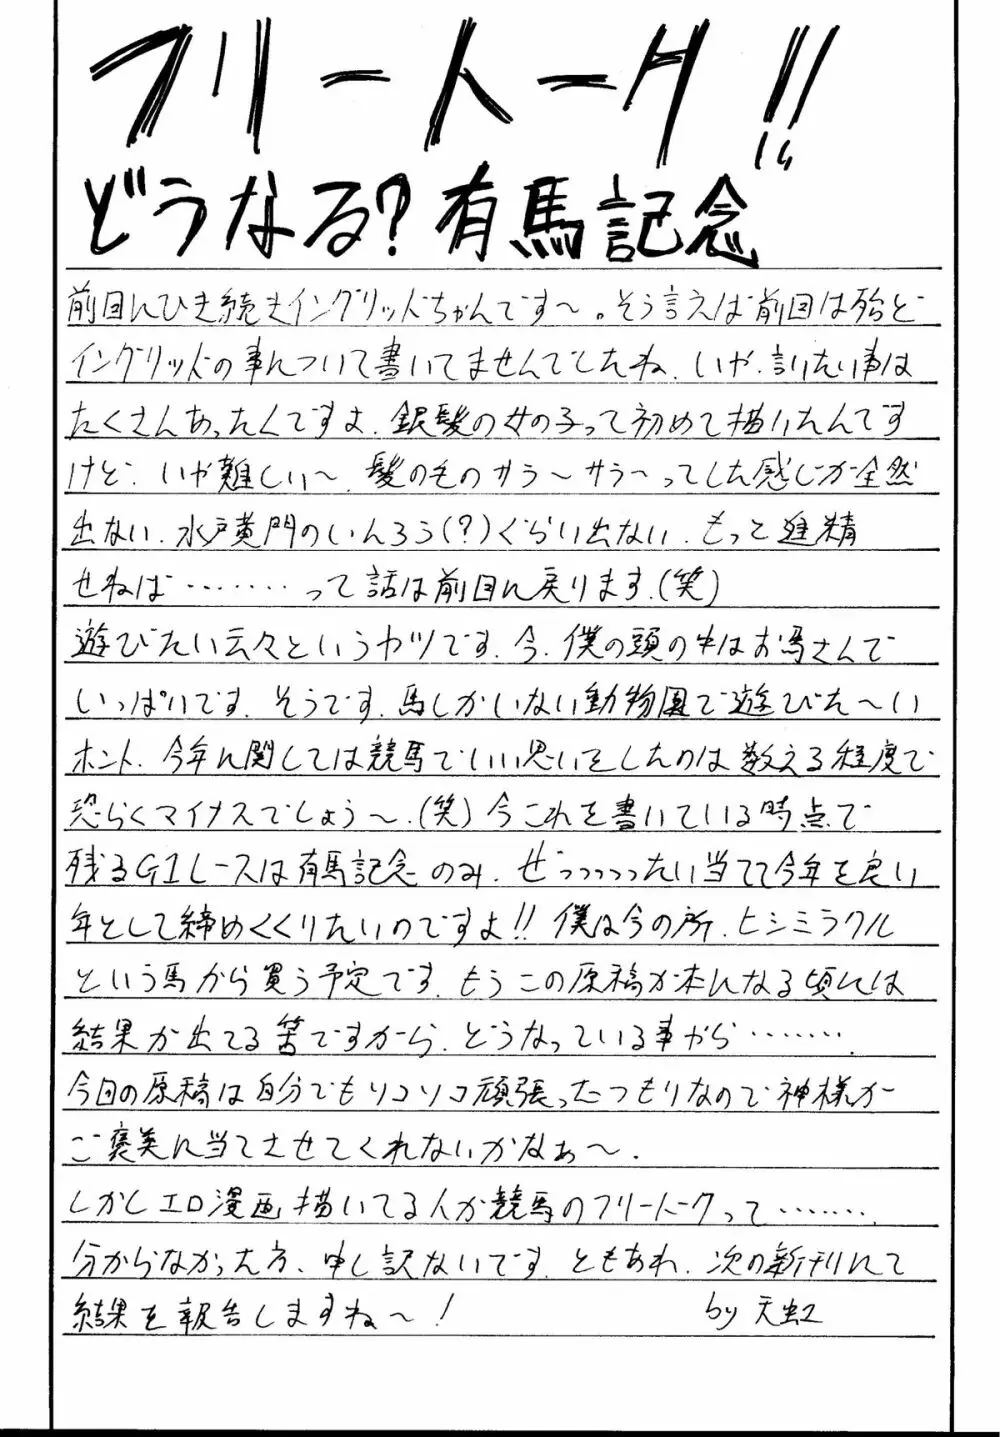 フリートーク!!
どうなる?有馬記念
前回にひき続きイングリッドちゃんです〜。そう言えば前回は殆ど
イングリッドの事について書いてませんでしたね、いや、言いたい事は
たくさんあったんですよ、銀髪の女の子って初めて描いたんです
けど、いや難しい〜、髪の毛のサラ〜サラ〜ってした感じが全然
出ない、水戸黄門のいんろう(?)ぐらい出ない、もっと進精
せねば………って話は前回に戻ります、(笑)
遊びたい云々というヤツです、今、僕の頭の中はお馬さんで
いっぱいです、そうです、馬しかいない動物園で遊びた〜い
ホント、今年に関しては競馬でいい思いをしたのは数える程度で
恐らくマイナスでしょう〜、(笑)今これを書いている時点で
残るG1レースは有馬記念のみ、ぜっっっったい当てて今年を良い
年として締めくくりたいのですよ!!僕は今の所、ヒシミラクル
という馬から買う予定です、もうこの原稿が本になる頃には
結果が出てる筈ですから、どうなっている事やら………、
今回の原稿は自分でもソコソコ頑張ったつもりなので神様が
ご褒美に当てさせてくれないかなぁ〜、
しかしエロ漫画描いてる人が競馬のフリートークって………、
分からなかった方、申し訳ないです、ともあれ、次の新刊にて
結果を報告しますね〜!
by 天虹